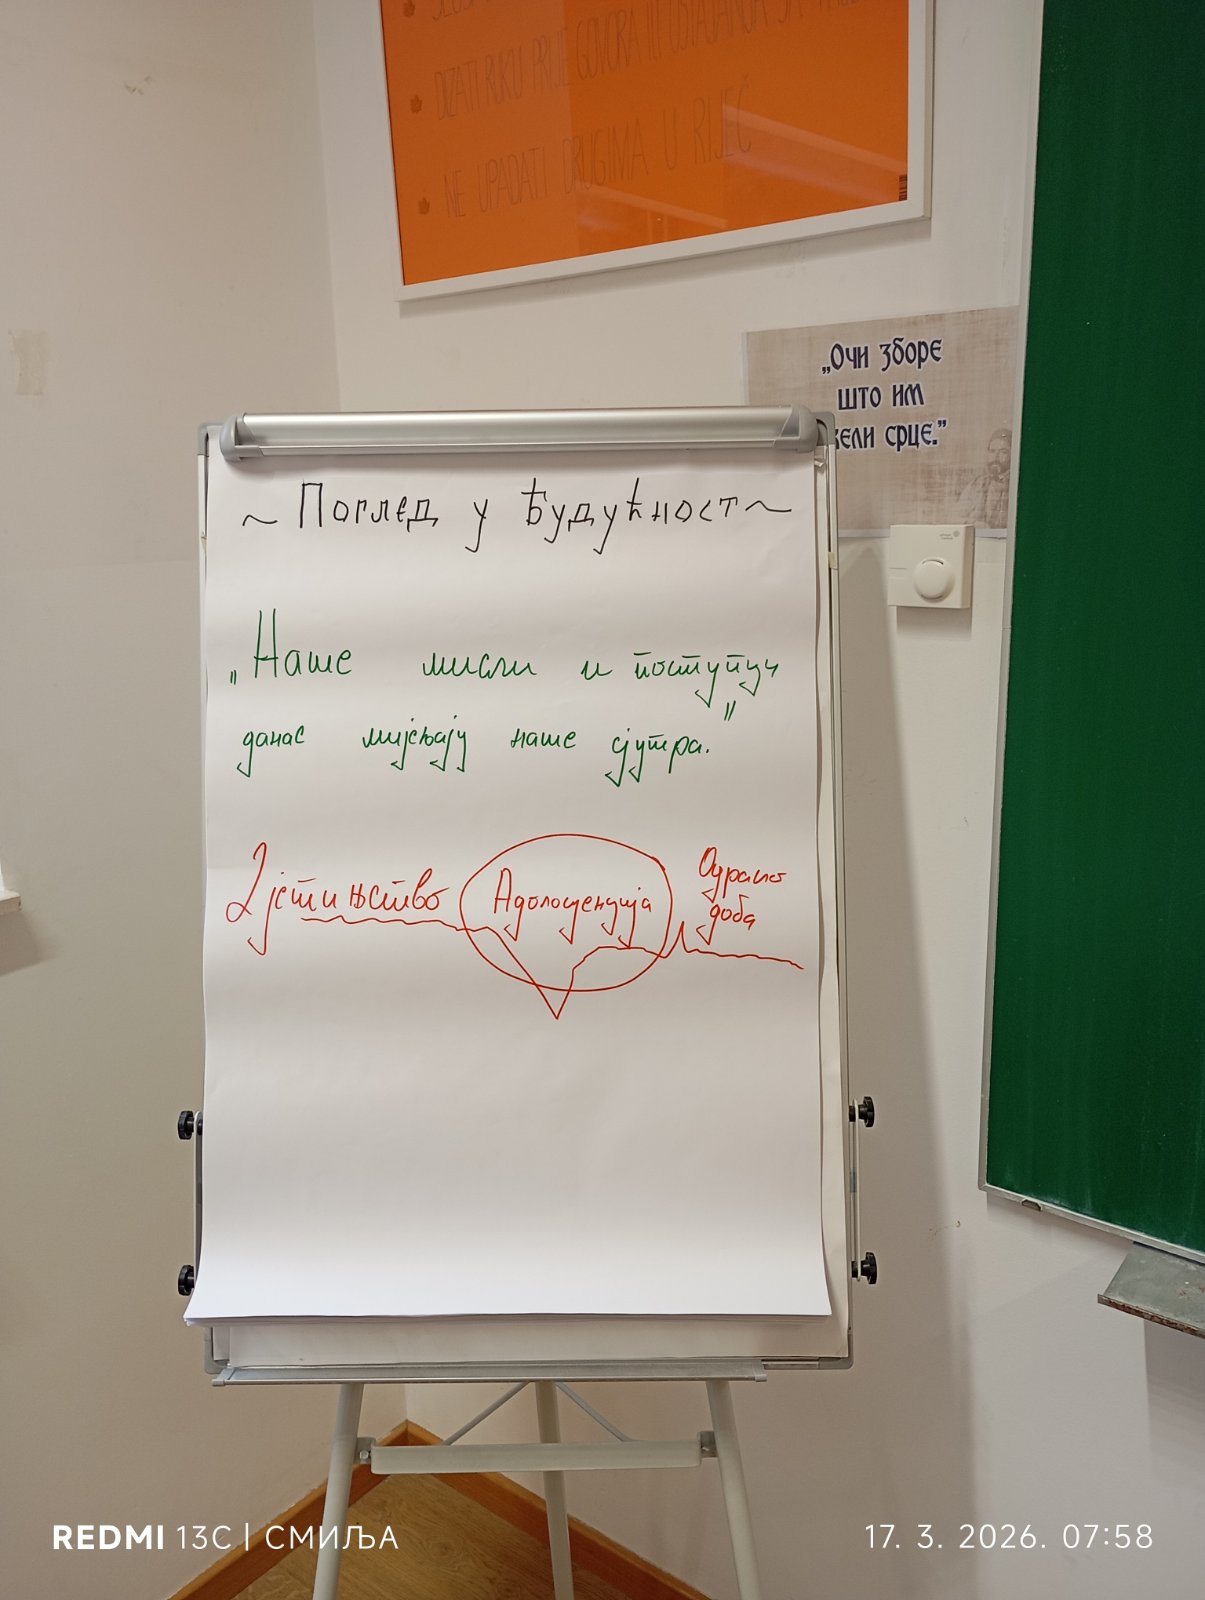 DIZATI RUKU PRIJE GOVORA ILI USTAJANJA SA
NE UPADATI DRUGIMA U RIJEČ
„Очи зборе
што им
вели срце.”
~ Поглед у будућност ~
„Наше мисли и поступци
данас мијењају наше сјутра."
Дјетињство Адолосценција Одрасло
доба
REDMI 13C | СМИЉА 17. 3. 2026. 07:58